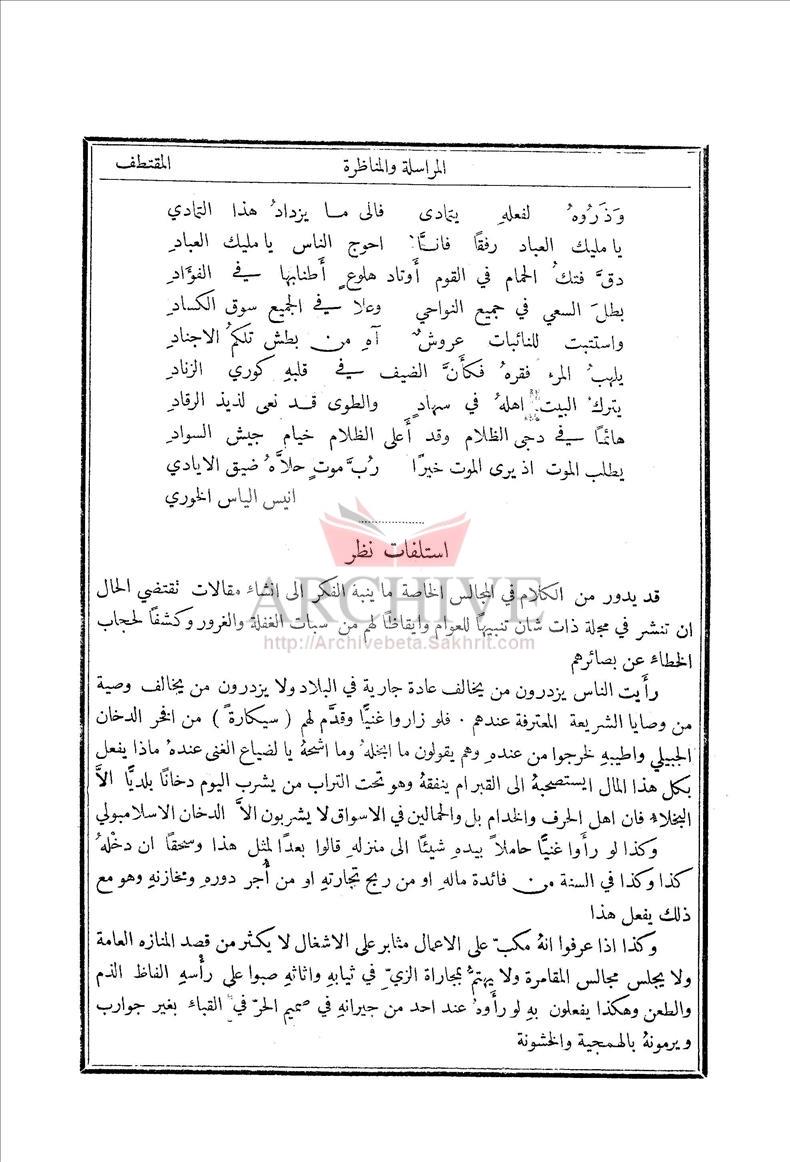 المراسلة والمناظرة المقتطف
وَذَرُوهُ لفعلهِ يتمادى فالى ما يزدادُ هذا التمادي
يا مليك العباد رفقًا فانَّا احوج الناس يا مليك العبادِ
دقَّ فتكُ الحمام في القوم أوتاد هلوعٍ أطنابها في الفؤادِ
بطلَ السعي في جميع النواحي وعلا في الجميع سوق الكسادِ
واستتبت للنائبات عروشٌ آهِ من بطش تلكمُ الاجنادِ
يلهبُ المرءَ فقرهُ فكأنَّ الضيف في قلبهِ كوري الزنادِ
يتركُ البيت اهلهُ في سهادٍ والطوى قد نعى لذيذ الرقادِ
هائمًا في دجى الظلام وقد أعلى الظلام خيام جيش السوادِ
يطلب الموت اذ يرى الموت خيرًا رُبَّ موتٍ حلاَّهُ ضيق الايادي
انيس الياس الخوري
استلفات نظر
قد يدور من الكلام في المجالس الخاصة ما ينبه الفكر الى انشاء مقالات تقتضي الحال
ان تنشر في مجلة ذات شان تنبيهًا للعوام وايقاظًا لهم من سبات الغفلة والغرور وكشفًا لحجاب
الخطاء عن بصائرهم
رأيت الناس يزدرون من يخالف عادة جارية في البلاد ولا يزدرون من يخالف وصية
من وصايا الشريعة المعترفة عندهم . فلو زاروا غنيًّا وقدَّم لهم ( سيكارةً ) من افخر الدخان
الجبيلي واطيبهِ لخرجوا من عندهِ وهم يقولون ما ابخلهُ وما اشحهُ يا لضياع الغنى عندهُ ماذا يفعل
بكل هذا المال ايستصحبهُ الى القبر ام ينفقهُ وهو تحت التراب من يشرب اليوم دخانًا بلديًّا الاَّ
البخلاء فان اهل الحرف والخدام بل والحمالين في الاسواق لا يشربون الاَّ الدخان الاسلامبولي
وكذا لو رأوا غنيًّا حاملاً بيدهِ شيئًا الى منزلهِ قالوا بعدًا لمثل هذا وسحقًا ان دخلهُ
كذا وكذا في السنة من فائدة مالهِ او من ربح تجارتهِ او من أُجر دورهِ ومخازنهِ وهو مع
ذلك يفعل هذا
وكذا اذا عرفوا انهُ مكبّ على الاعمال مثابر على الاشغال لا يكثر من قصد المنازه العامة
ولا يجلس مجالس المقامرة ولا يهتمُّ بمجاراة الزيّ في ثيابهِ واثاثهِ صبوا على رأسهِ الفاظ الذم
والطعن وهكذا يفعلون بهِ لو رأوهُ عند احد من جيرانهِ في صميم الحرّ في القباء بغير جوارب
ويرمونهُ بالهمجية والخشونة
ARCHIVE
http://Archivebeta.Sakhrit.com